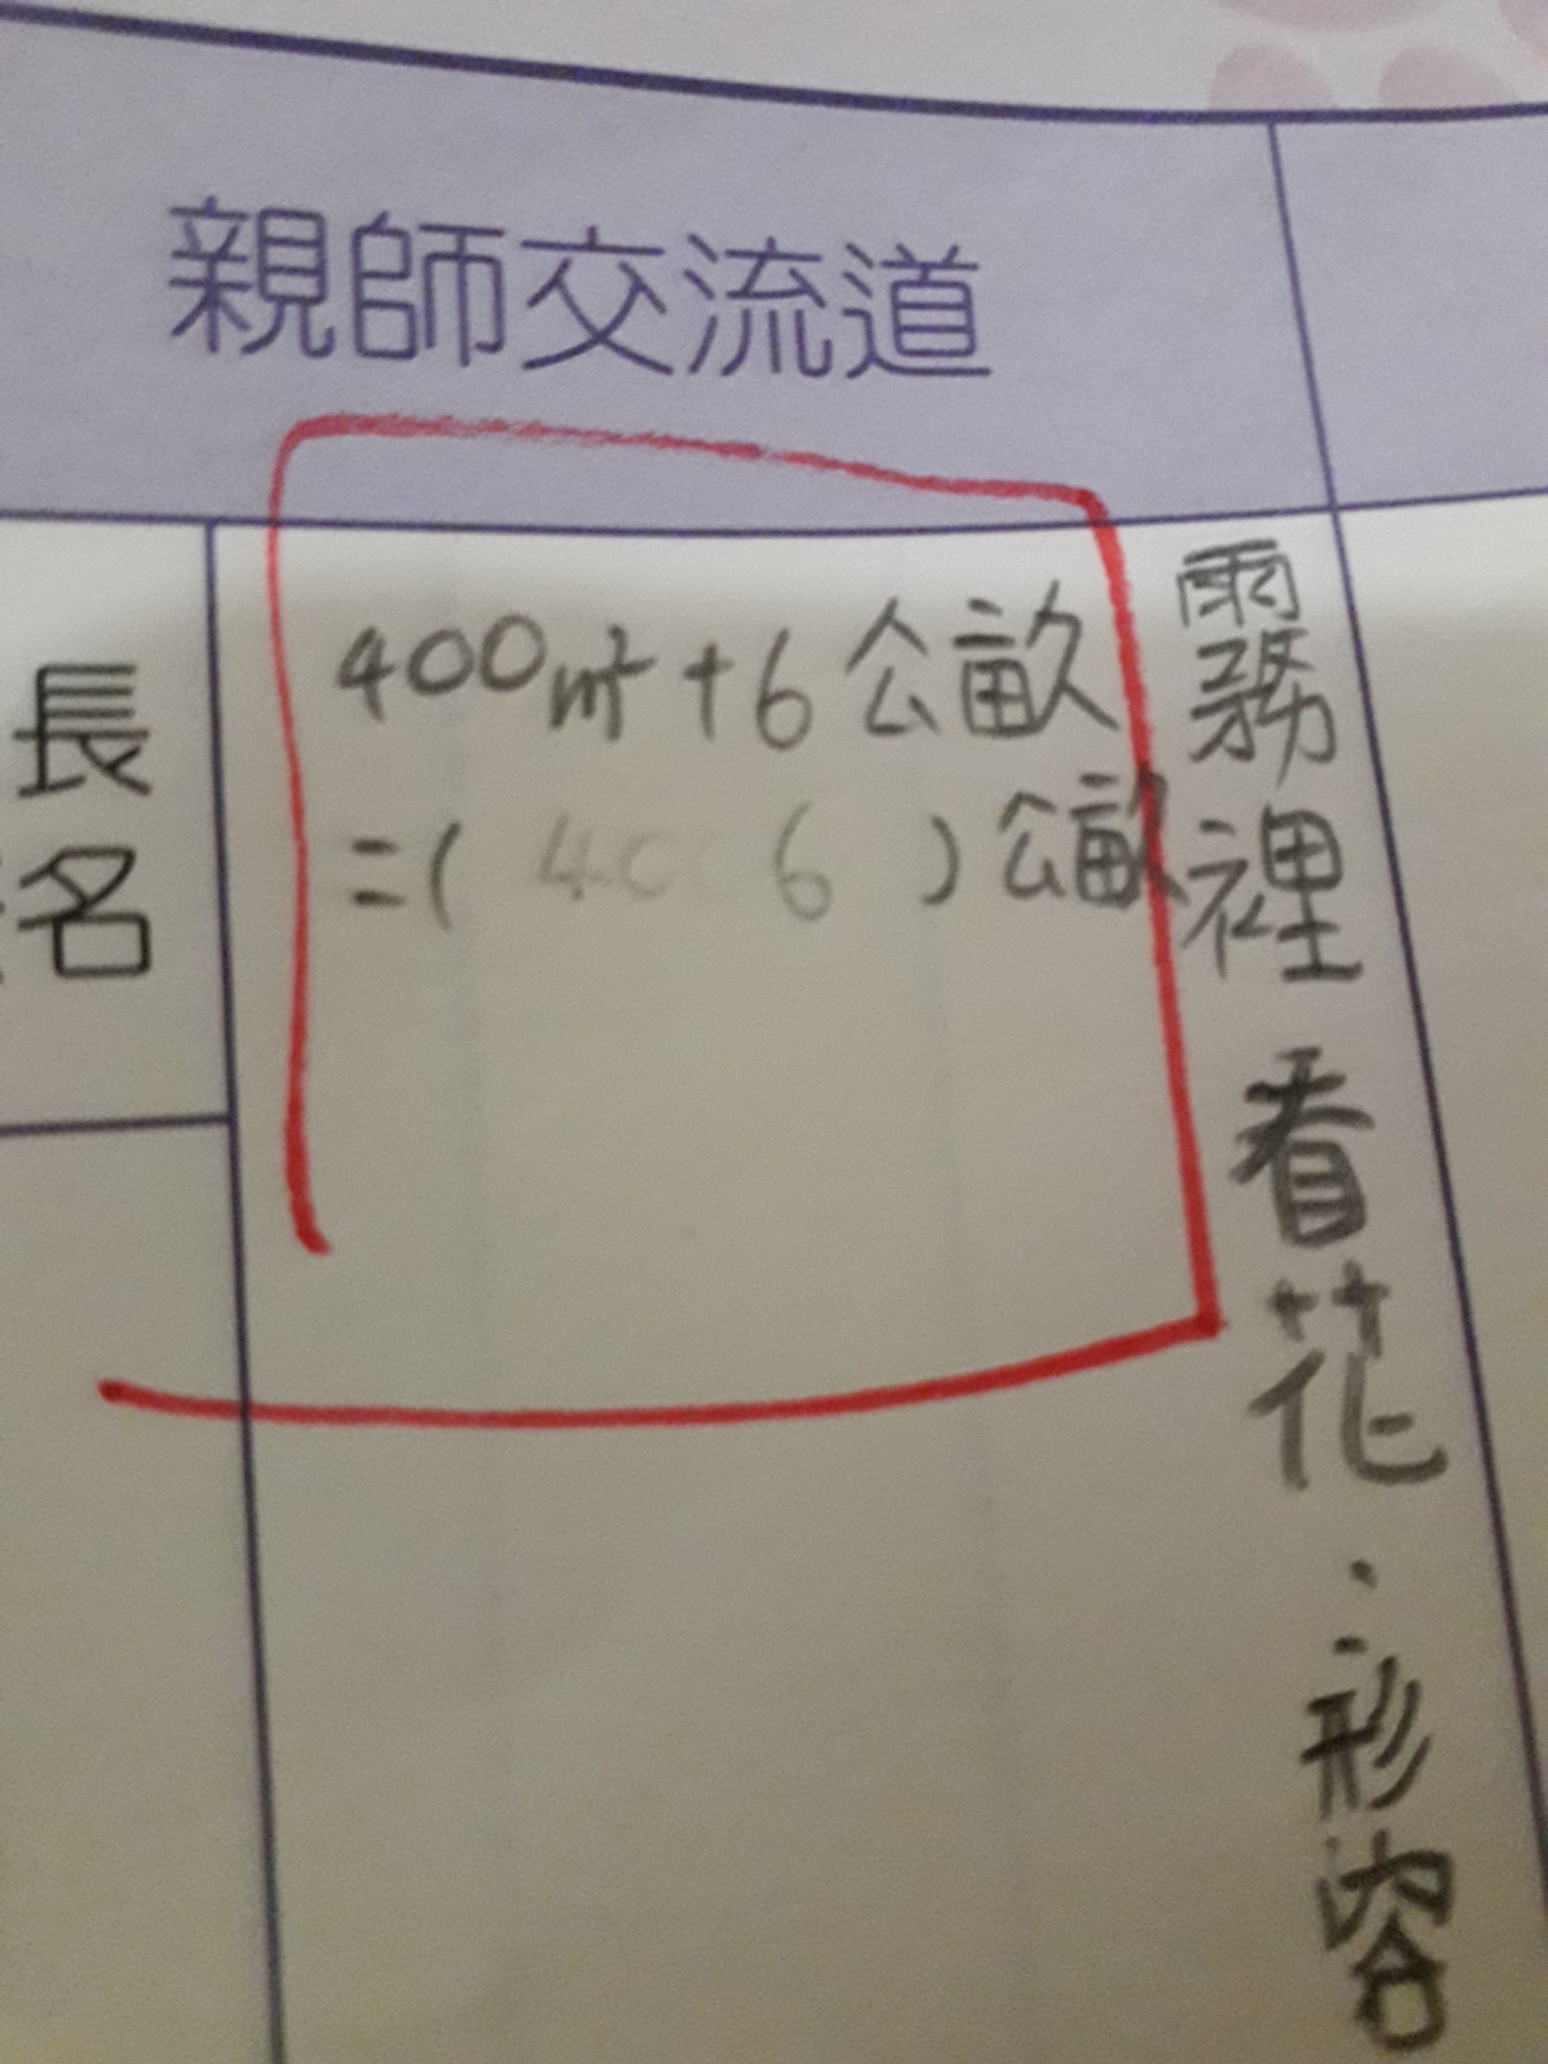 親師交流道
長
名
400m²+6公畝
=( 40 6 )公畝
霧裡看花:形容